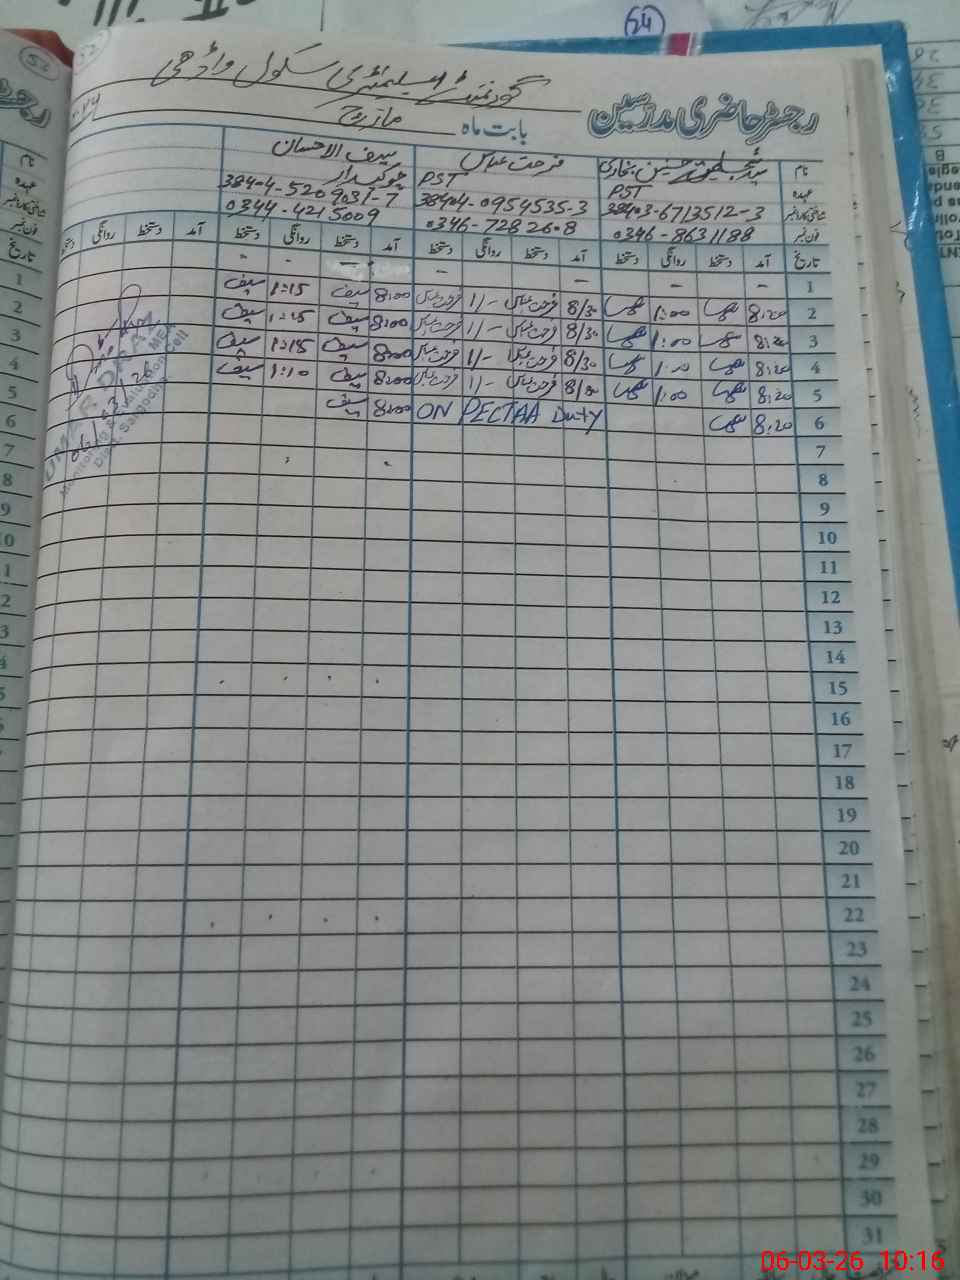 24
52
گورنمنٹ ایلیمنٹری سکول واڈھی
رجسٹر حاضری مدرسین
بابت ماہ مارچ
نام فرحت عباس سیف الاحسان
عہدہ PST PST چوکیدار
شناختی کارڈ نمبر 38403-6713512-3 38404-0954535-3 38404-5209031-7
فون نمبر 0346-8631188 0346-7282608 0344-4215009
تاریخ آمد دستخط روانگی دستخط آمد دستخط روانگی دستخط آمد دستخط روانگی دستخط آمد دستخط روانگی دستخط
1 - - - - - -
2 8:20 1:00 8/30 فرحت عباس 1/- فرحت عباس 8:00 سیف 1:15 سیف
3 8:20 1:00 8/30 فرحت عباس 1/- فرحت عباس 8:00 سیف 1:15 سیف
4 8:20 1:00 8/30 فرحت عباس 1/- فرحت عباس 8:00 سیف 1:15 سیف
5 8:20 1:00 8/30 فرحت عباس 1/- فرحت عباس 8:00 سیف 1:10 سیف
6 8:20 ON PECTAA Duty 8:00 سیف
7
8
9
10
11
12
13
14
15
16
17
18
19
20
21
22
23
24
25
26
27
28
29
30
31
UMAR DRAZ
MEA
06/03/26
Monitoring & Evaluation Cell
Distt. Sargodha
06-03-26 10:16